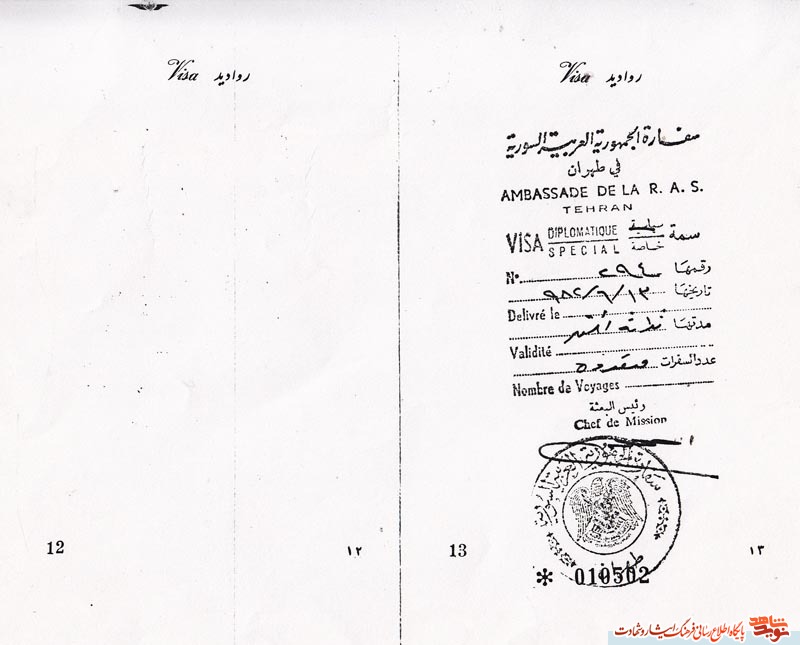 Visa رواديد
12
١٢
Visa رواديد
سفارة الجمهورية العربية السورية
في طهران
AMBASSADE DE LA R. A. S.
TEHRAN
VISA DIPLOMATIQUE سياسية سمة
SPECIAL خاصة
N°. ٢٩٤ رقمها
٩٨٢/٦/١٣ تاريخها
Delivré le
ثلاثة أشهر مدتها
Validité
عدد السفرات
Nombre de Voyages
رئيس البعثة
Chef de Mission
سفارة الجمهورية العربية السورية
طهران
* 010502
13
١٣
نوید شاهد
پایگاه اطلاع رسانی فرهنگ ایثار و شهادت